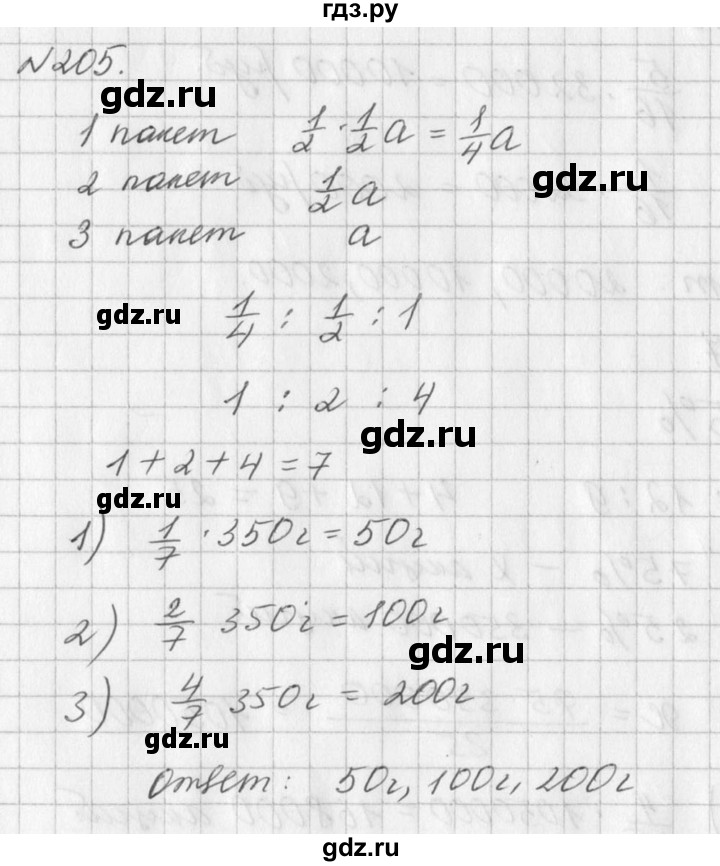 гдз.ру
№205.
1 пакет 1/2 · 1/2 a = 1/4 a
2 пакет 1/2 a
3 пакет a
gdz.ru
gdz.ru 1/4 : 1/2 : 1
1 : 2 : 4
gdz.ru
1+2+4=7
gdz.ru
1) 1/7 · 350г = 50г
2) 2/7 350г = 100г
gdz.ru
3) 4/7 350г = 200г
gdz.ru
Ответ: 50г, 100г, 200г
gdz.ru